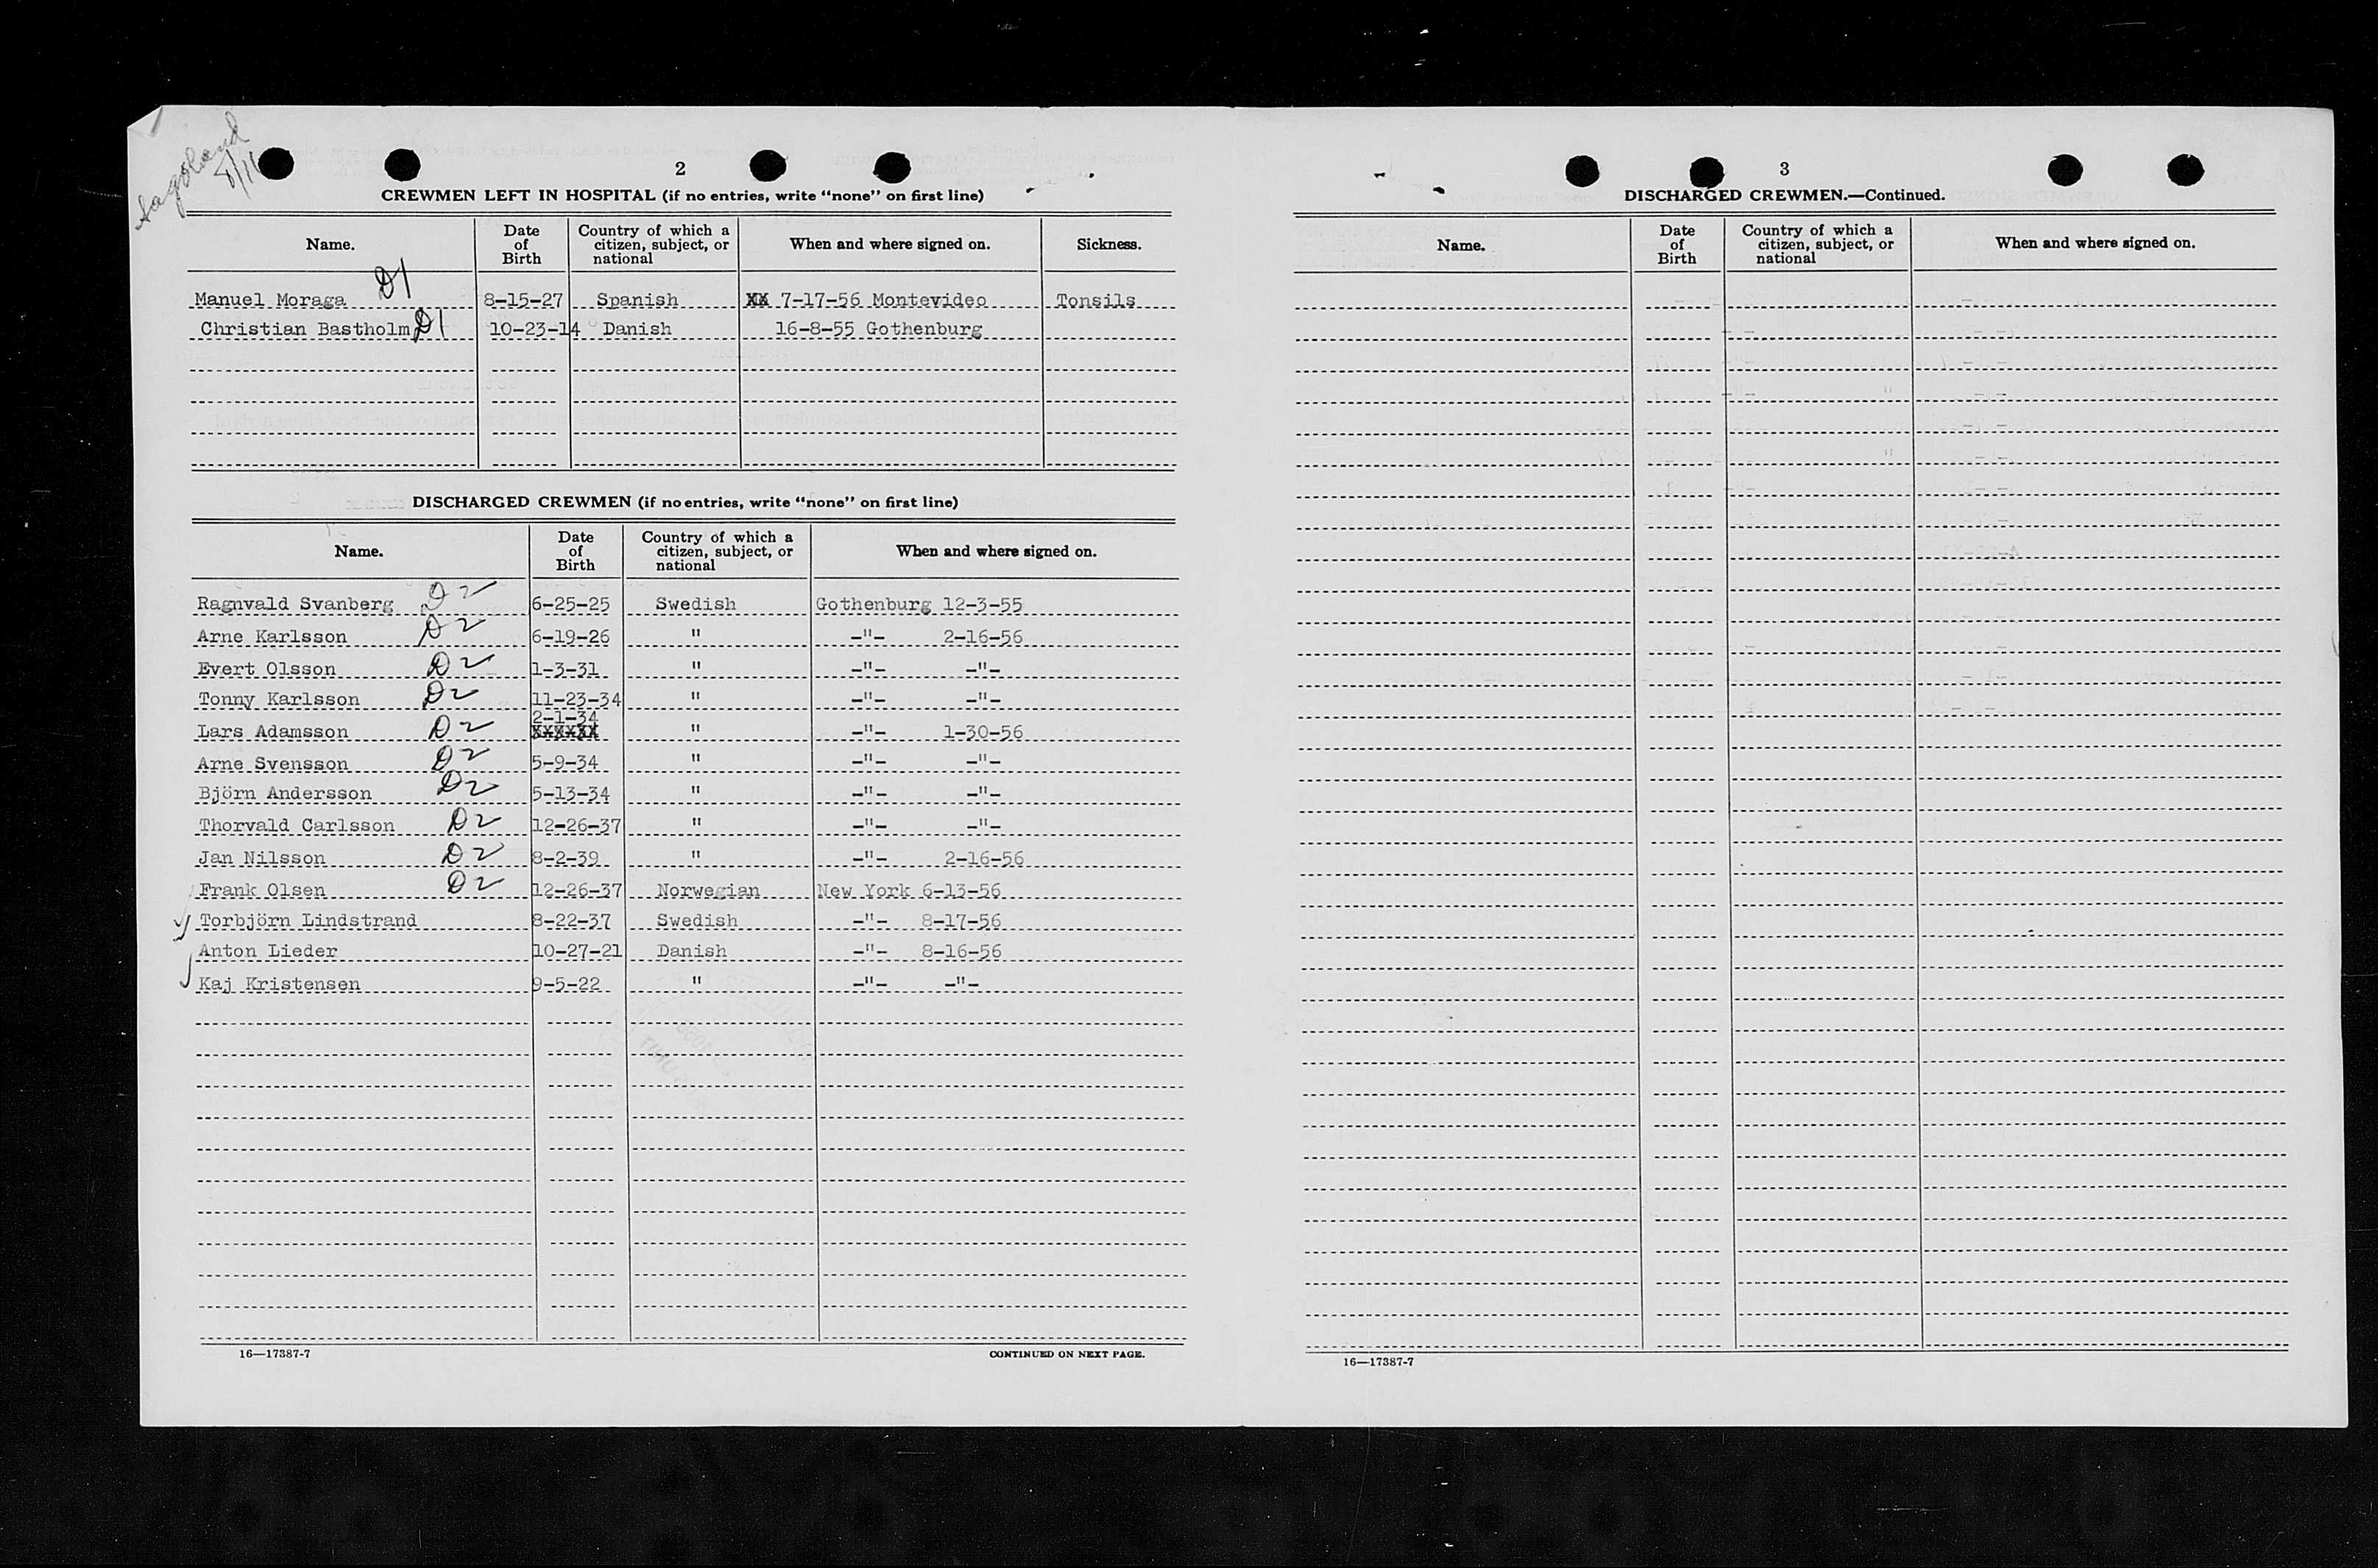 Sagoland
8/16
2
CREWMEN LEFT IN HOSPITAL (if no entries, write “none” on first line)
Name. Date of Birth Country of which a citizen, subject, or national When and where signed on. Sickness.
Manuel Moraga D1 8-15-27 Spanish XX 7-17-56 Montevideo Tonsils
Christian Bastholm D1 10-23-14 Danish 16-8-55 Gothenburg
DISCHARGED CREWMEN (if no entries, write “none” on first line)
Name. Date of Birth Country of which a citizen, subject, or national When and where signed on.
Ragnvald Svanberg D2 6-25-25 Swedish Gothenburg 12-3-55
Arne Karlsson D2 6-19-26 " -"- 2-16-56
Evert Olsson D2 1-3-31 " -"- -"-
Tonny Karlsson D2 11-23-34 " -"- -"-
Lars Adamsson D2 2-1-34 XXXXXX " -"- 1-30-56
Arne Svensson D2 5-9-34 " -"- -"-
Björn Andersson D2 5-13-34 " -"- -"-
Thorvald Carlsson D2 12-26-37 " -"- -"-
Jan Nilsson D2 8-2-39 " -"- 2-16-56
Frank Olsen D2 12-26-37 Norwegian New York 6-13-56
Torbjörn Lindstrand 8-22-37 Swedish -"- 8-17-56
Anton Lieder 10-27-21 Danish -"- 8-16-56
Kaj Kristensen 9-5-22 " -"- -"-
16—17387-7 CONTINUED ON NEXT PAGE.
3
DISCHARGED CREWMEN.—Continued.
Name. Date of Birth Country of which a citizen, subject, or national When and where signed on.
16—17387-7